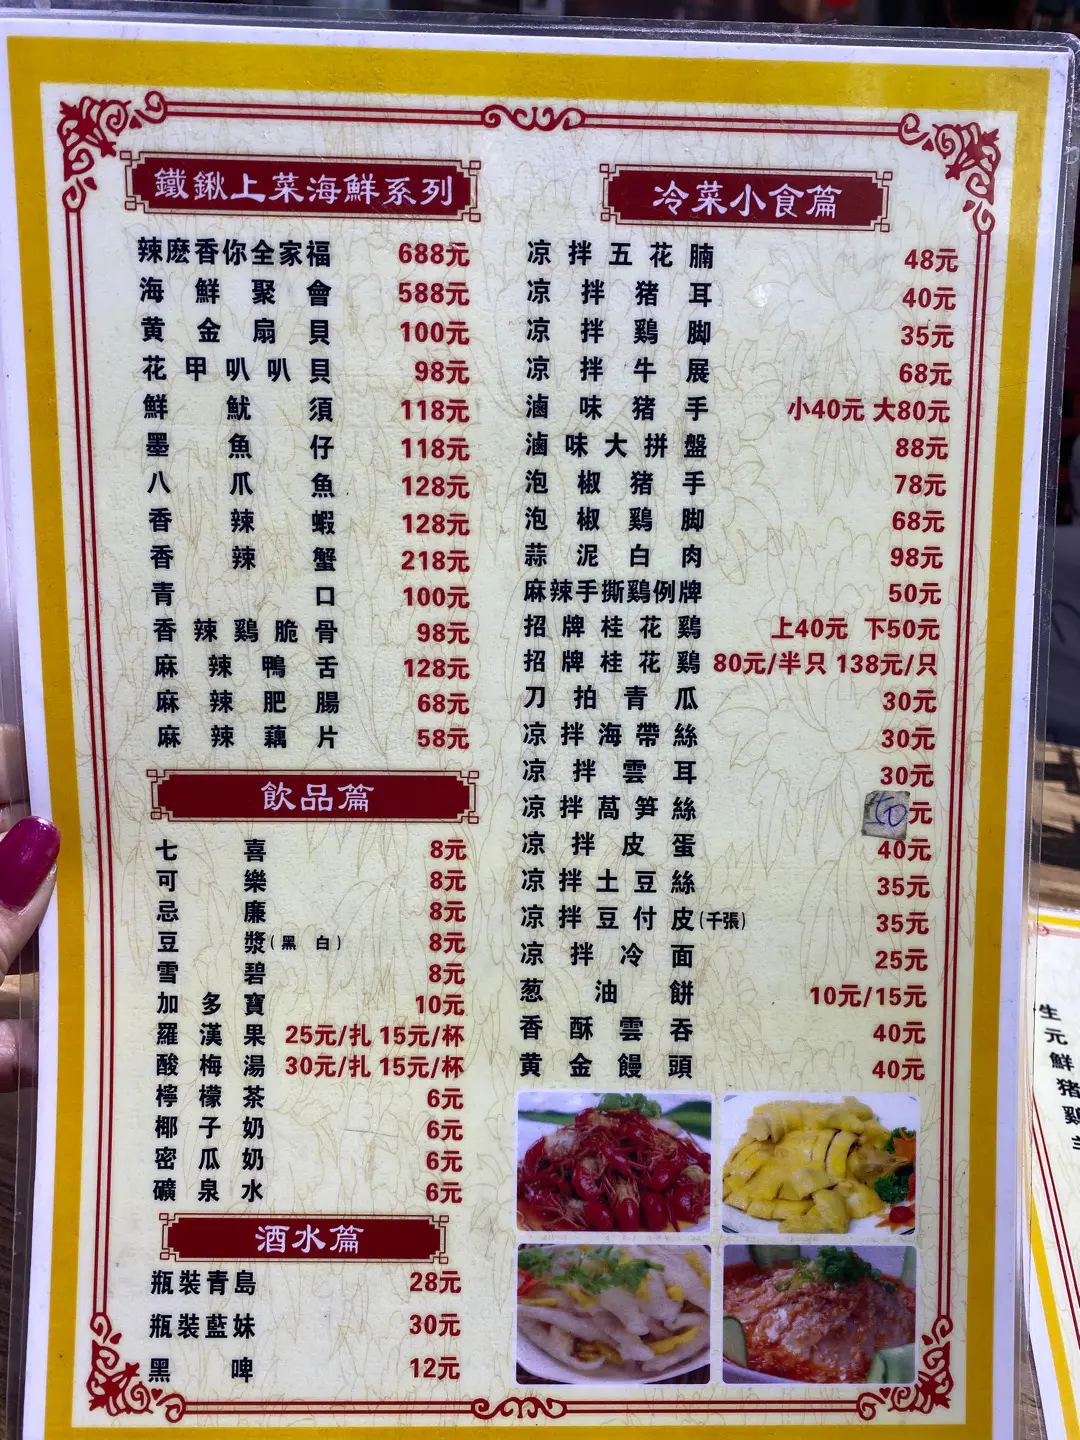 鐵鍬上菜海鮮系列
辣麽香你全家福 688元
海鮮聚會 588元
黄金扇貝 100元
花甲叭叭貝 98元
鮮魷須 118元
墨魚仔 118元
八爪魚 128元
香辣蝦 128元
香辣蟹 218元
青口 100元
香辣鷄脆骨 98元
麻辣鴨舌 128元
麻辣肥腸 68元
麻辣藕片 58元
飲品篇
七喜 8元
可樂 8元
忌廉 8元
豆漿(黑 白) 8元
雪碧 8元
加多寶 10元
羅漢果 25元/扎 15元/杯
酸梅湯 30元/扎 15元/杯
檸檬茶 6元
椰子奶 6元
密瓜奶 6元
礦泉水 6元
酒水篇
瓶裝青島 28元
瓶裝藍妹 30元
黑啤 12元
冷菜小食篇
凉拌五花腩 48元
凉拌猪耳 40元
凉拌鷄脚 35元
凉拌牛展 68元
滷味猪手 小40元 大80元
滷味大拼盤 88元
泡椒猪手 78元
泡椒鷄脚 68元
蒜泥白肉 98元
麻辣手撕鷄例牌 50元
招牌桂花鷄 上40元 下50元
招牌桂花鷄 80元/半只 138元/只
刀拍青瓜 30元
凉拌海帶絲 30元
凉拌雲耳 30元
凉拌萵笋絲 50元
凉拌皮蛋 40元
凉拌土豆絲 35元
凉拌豆付皮(千張) 35元
凉拌冷面 25元
葱油餅 10元/15元
香酥雲吞 40元
黄金饅頭 40元
生
元
鮮
猪
鷄